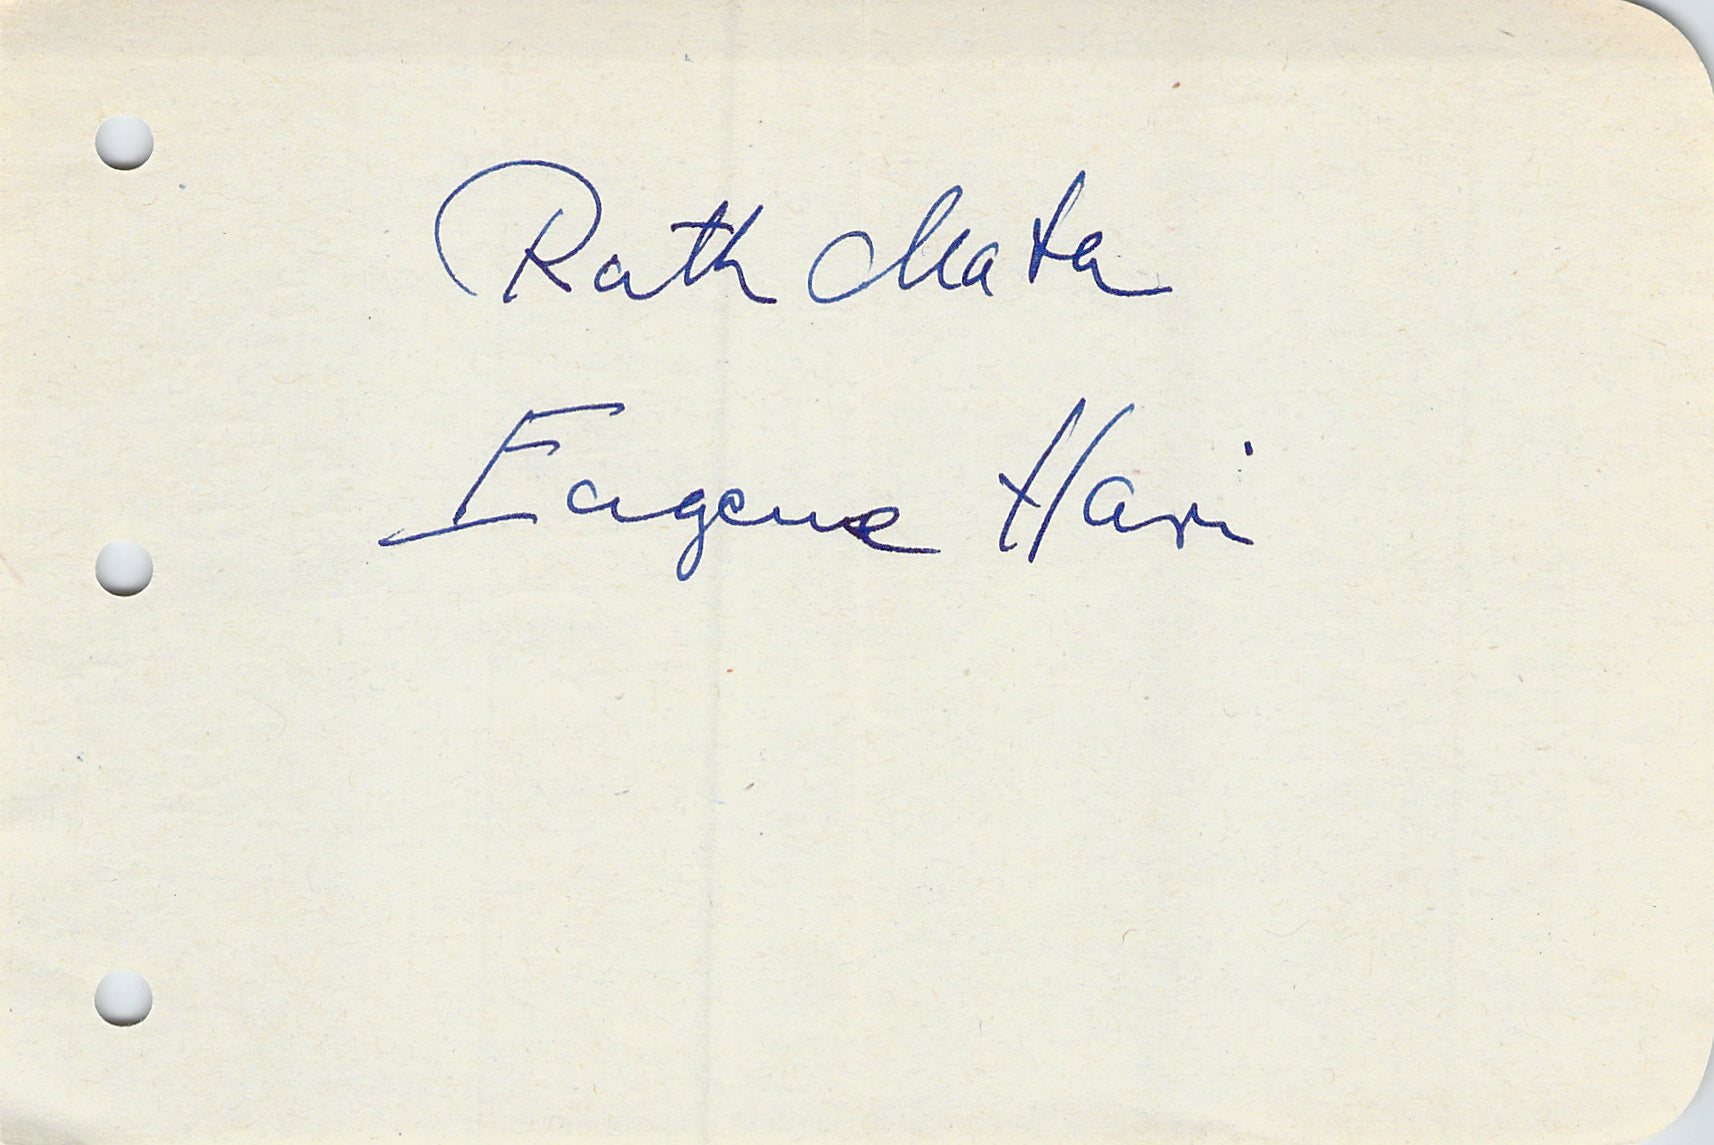 Ruth Mata
Eugene Hari